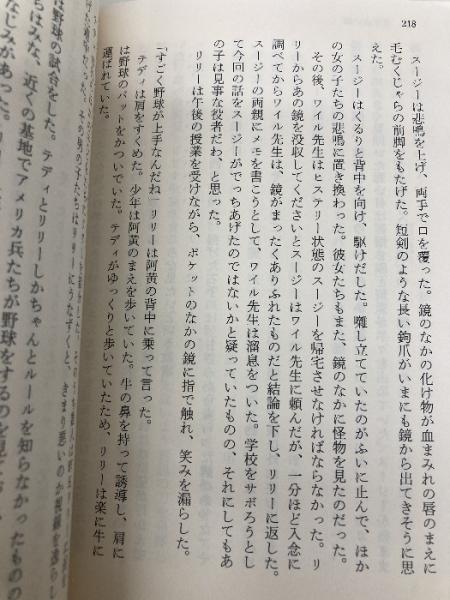 218
スージーは悲鳴を上げ、両手で口を覆った。鏡のなかの化け物が血まみれの唇のまえに
毛むくじゃらの前脚をもたげた。短剣のような長い鉤爪がいまにも鏡から出てきそうに思
えた。
スージーはくるりと背中を向け、駆けだした。囃し立てていたのがふいに止んで、ほか
の女の子たちの悲鳴に置き換わった。彼女たちもまた、鏡のなかに怪物を見たのだった。
その後、ワイル先生はヒステリー状態のスージーを帰宅させなければならなかった。リ
リーからあの鏡を没収してくださいとスージーはワイル先生に頼んだが、一分ほど入念に
調べてからワイル先生は、鏡がまったくありふれたものだと結論を下し、リリーに返した。
スージーの両親にメモを書こうとして、ワイル先生は溜息をついた。学校をサボろうとし
て今回の話をスージーがでっちあげたのではないかと疑っていたものの、それにしてもあ
の子は見事な役者だわ、と思った。
リリーは午後の授業を受けながら、ポケットのなかの鏡に指で触れ、笑みを漏らした。
「すごく野球が上手なんだね」リリーは阿黄の背中に乗って言った。
テディは肩をすくめた。少年は阿黄のまえを歩いていた。牛の鼻を持って誘導し、肩に
は野球のバットをかついでいた。テディがゆっくりと歩いていたため、リリーは楽に牛に
運ばれていた。
うなずくと、きまり悪いのか視線を逸らし
は野球の試合をした。テディとリリーしかちゃんとルールを知らなかったものの
ちはみな、近くの基地でアメリカ兵たちが野球をするのを見て
なじみがあった。